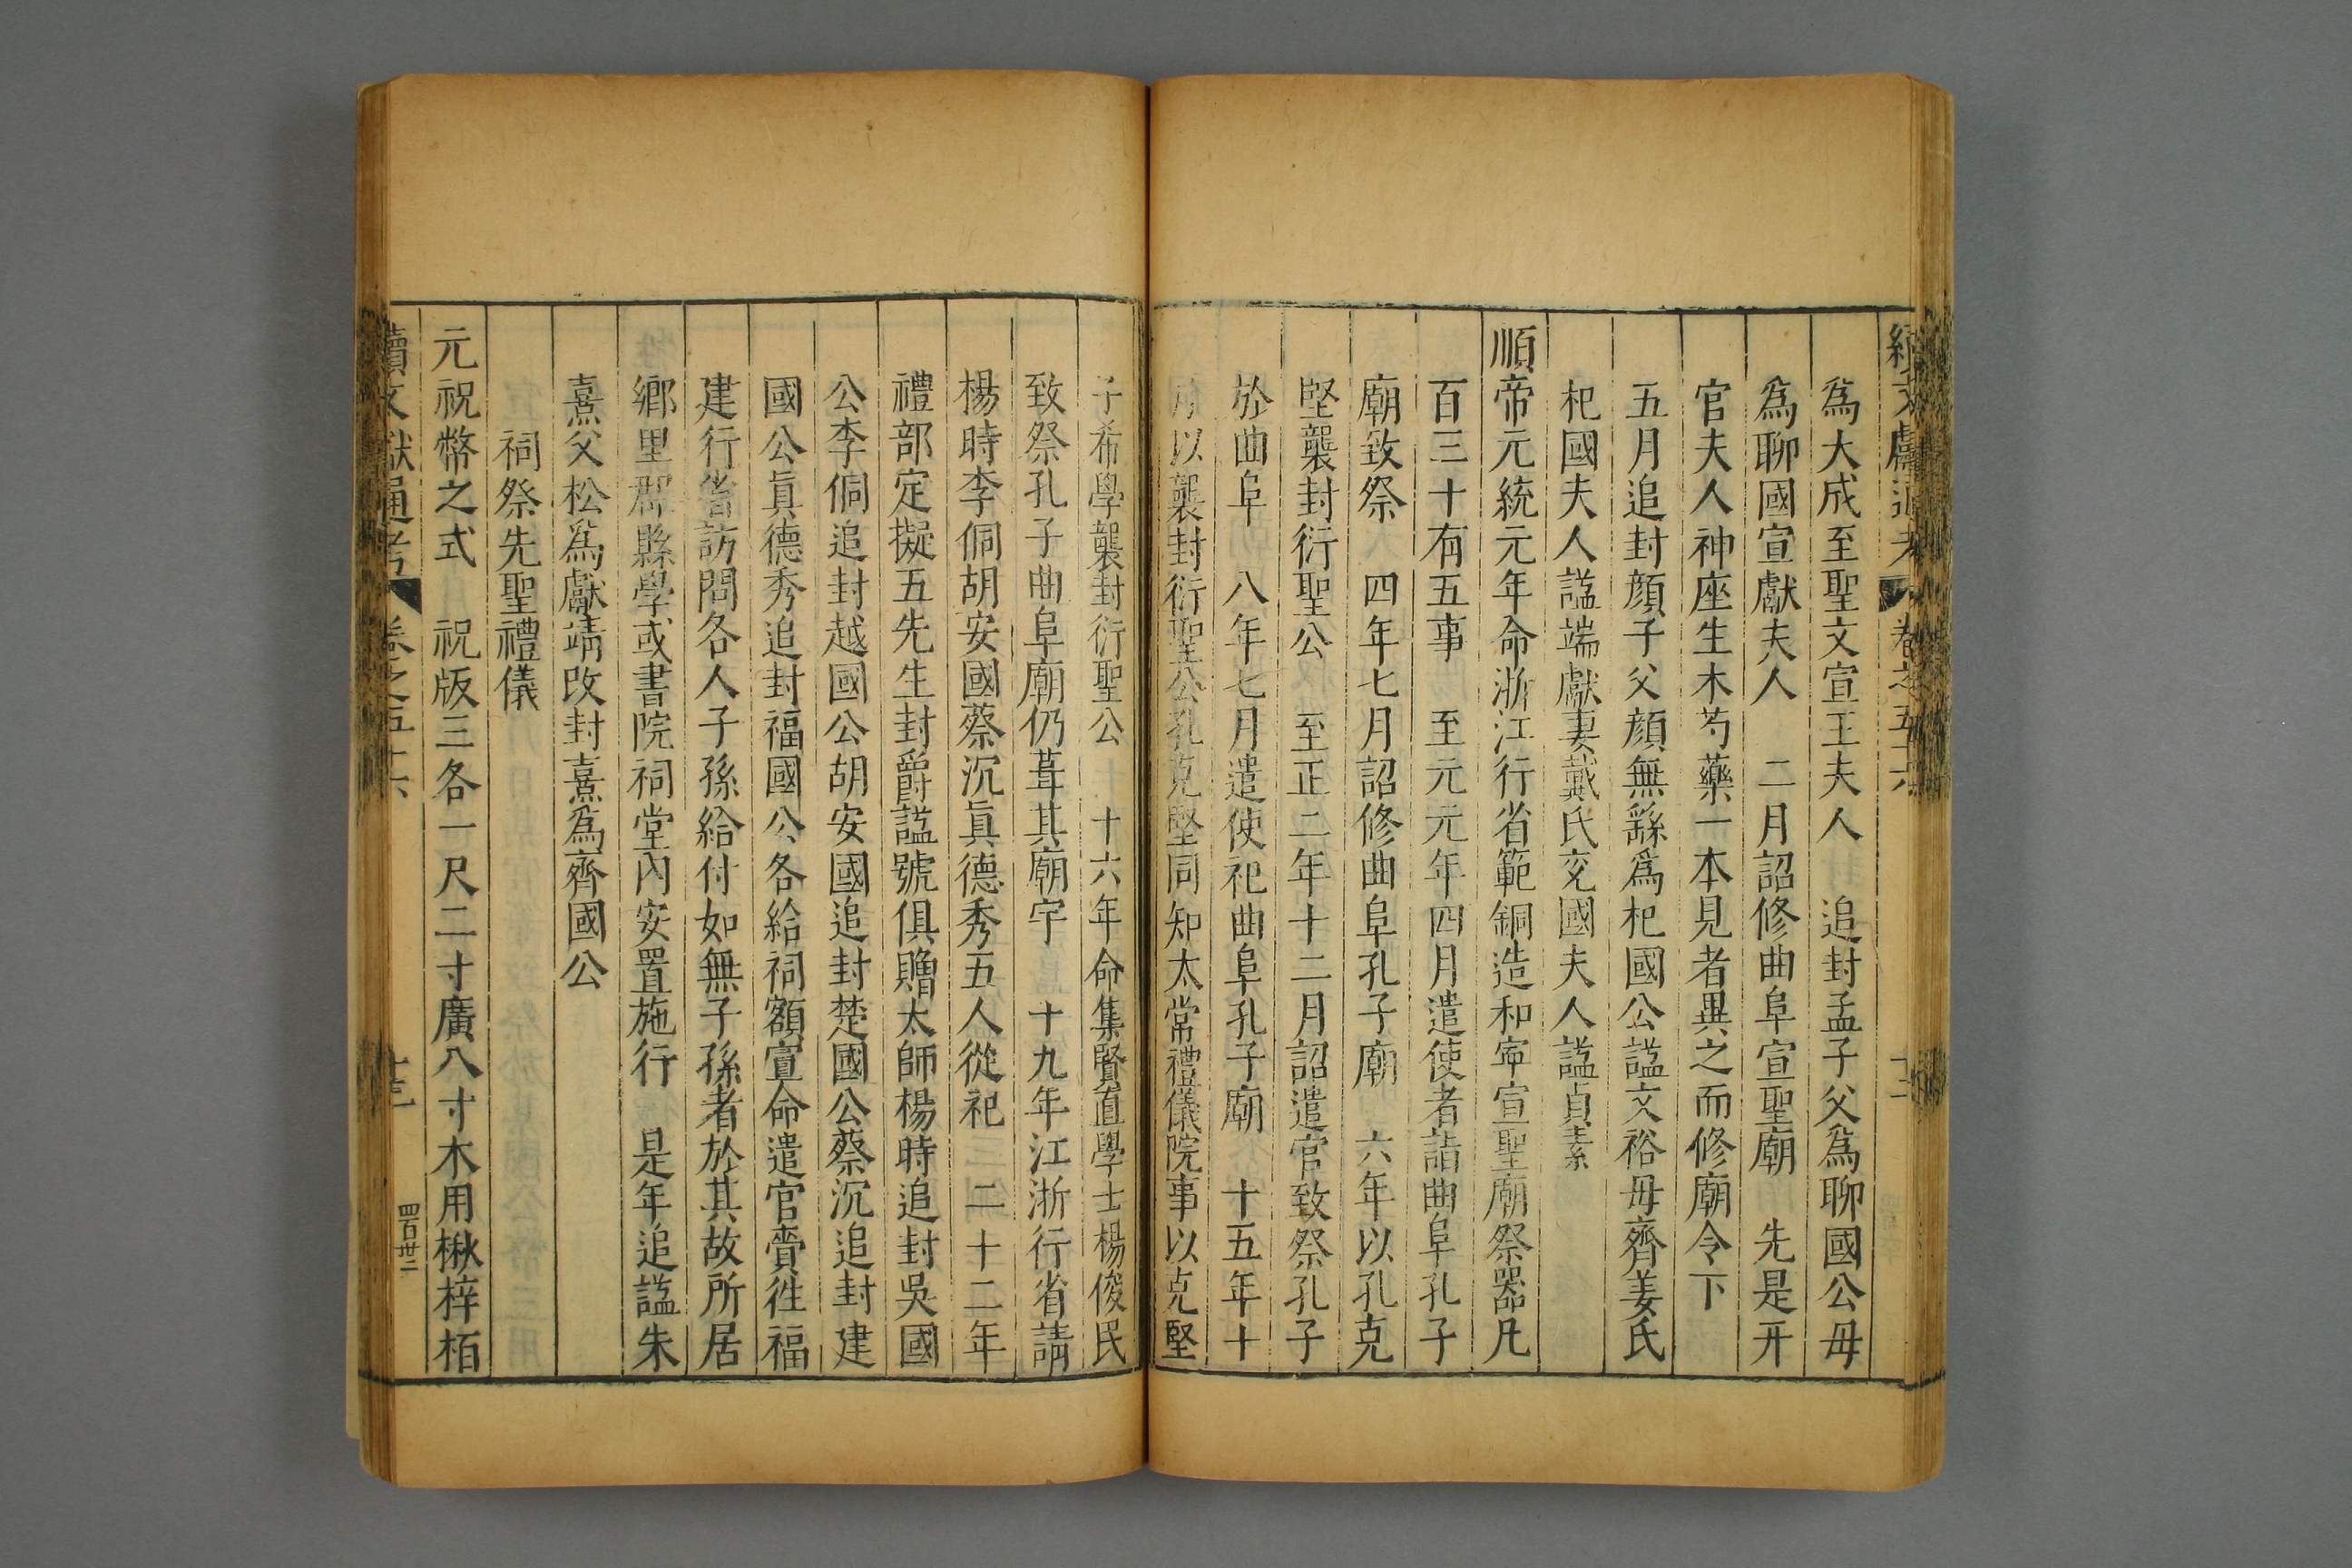 續文獻通考 卷之五十六 十二
爲大成至聖文宣王夫人 追封孟子父爲聊國公母
爲聊國宣獻夫人 二月詔修曲阜宣聖廟 先是开
官夫人神座生木芍藥一本見者異之而修廟令下
五月追封顔子父顔無繇爲杞國公諡文裕母齊姜氏
杞國夫人諡端獻妻戴氏兖國夫人諡貞素
順帝元統元年命浙江行省範銅造和寕宣聖廟祭器凡
百三十有五事 至元元年四月遣使者詣曲阜孔子
廟致祭 四年七月詔修曲阜孔子廟 六年以孔克
堅襲封衍聖公 至正二年十二月詔遣官致祭孔子
於曲阜 八年七月遣使祀曲阜孔子廟 十五年十
月以襲封衍聖公孔克堅同知太常禮儀院事以克堅
子希學襲封衍聖公 十六年命集賢直學士楊俊民
致祭孔子曲阜廟仍葺其廟宇 十九年江浙行省請
楊時李侗胡安國蔡沉眞德秀五人從祀 二十二年
禮部定擬五先生封爵諡號俱贈太師楊時追封吳國
公李侗追封越國公胡安國追封楚國公蔡沉追封建
國公眞德秀追封福國公各給祠額宣命遣官賫徃福
建行省訪問各人子孫給付如無子孫者於其故所居
鄉里郡縣學或書院祠堂內安置施行 是年追諡朱
熹父松爲獻靖改封熹爲齊國公
祠祭先聖禮儀
元祝幣之式 祝版三各一尺二寸廣八寸木用楸梓栢
續文獻通考 卷之五十六 十三 四百卅二